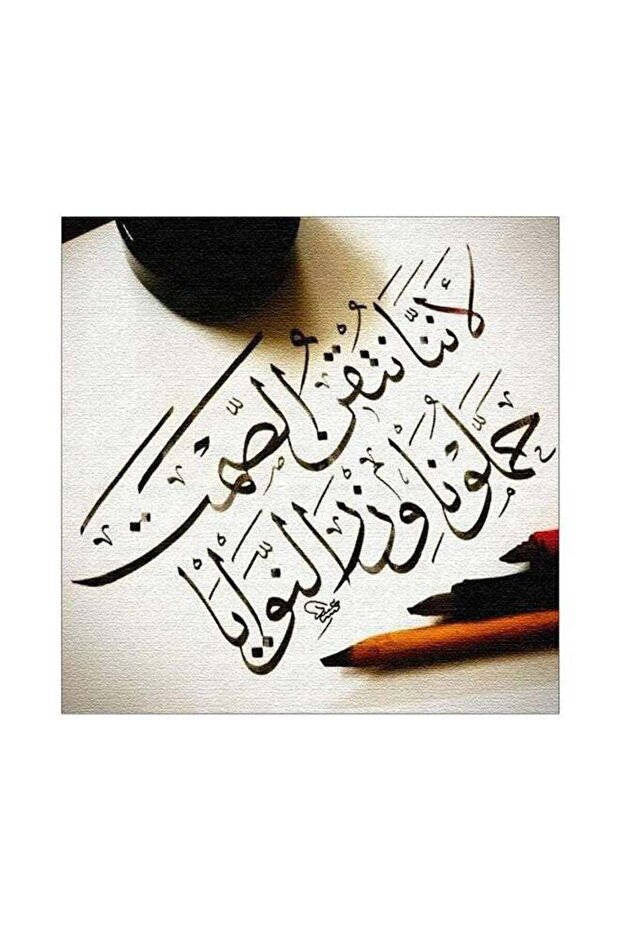 لأننا نتقن الصمت
حملونا وزر النوايا